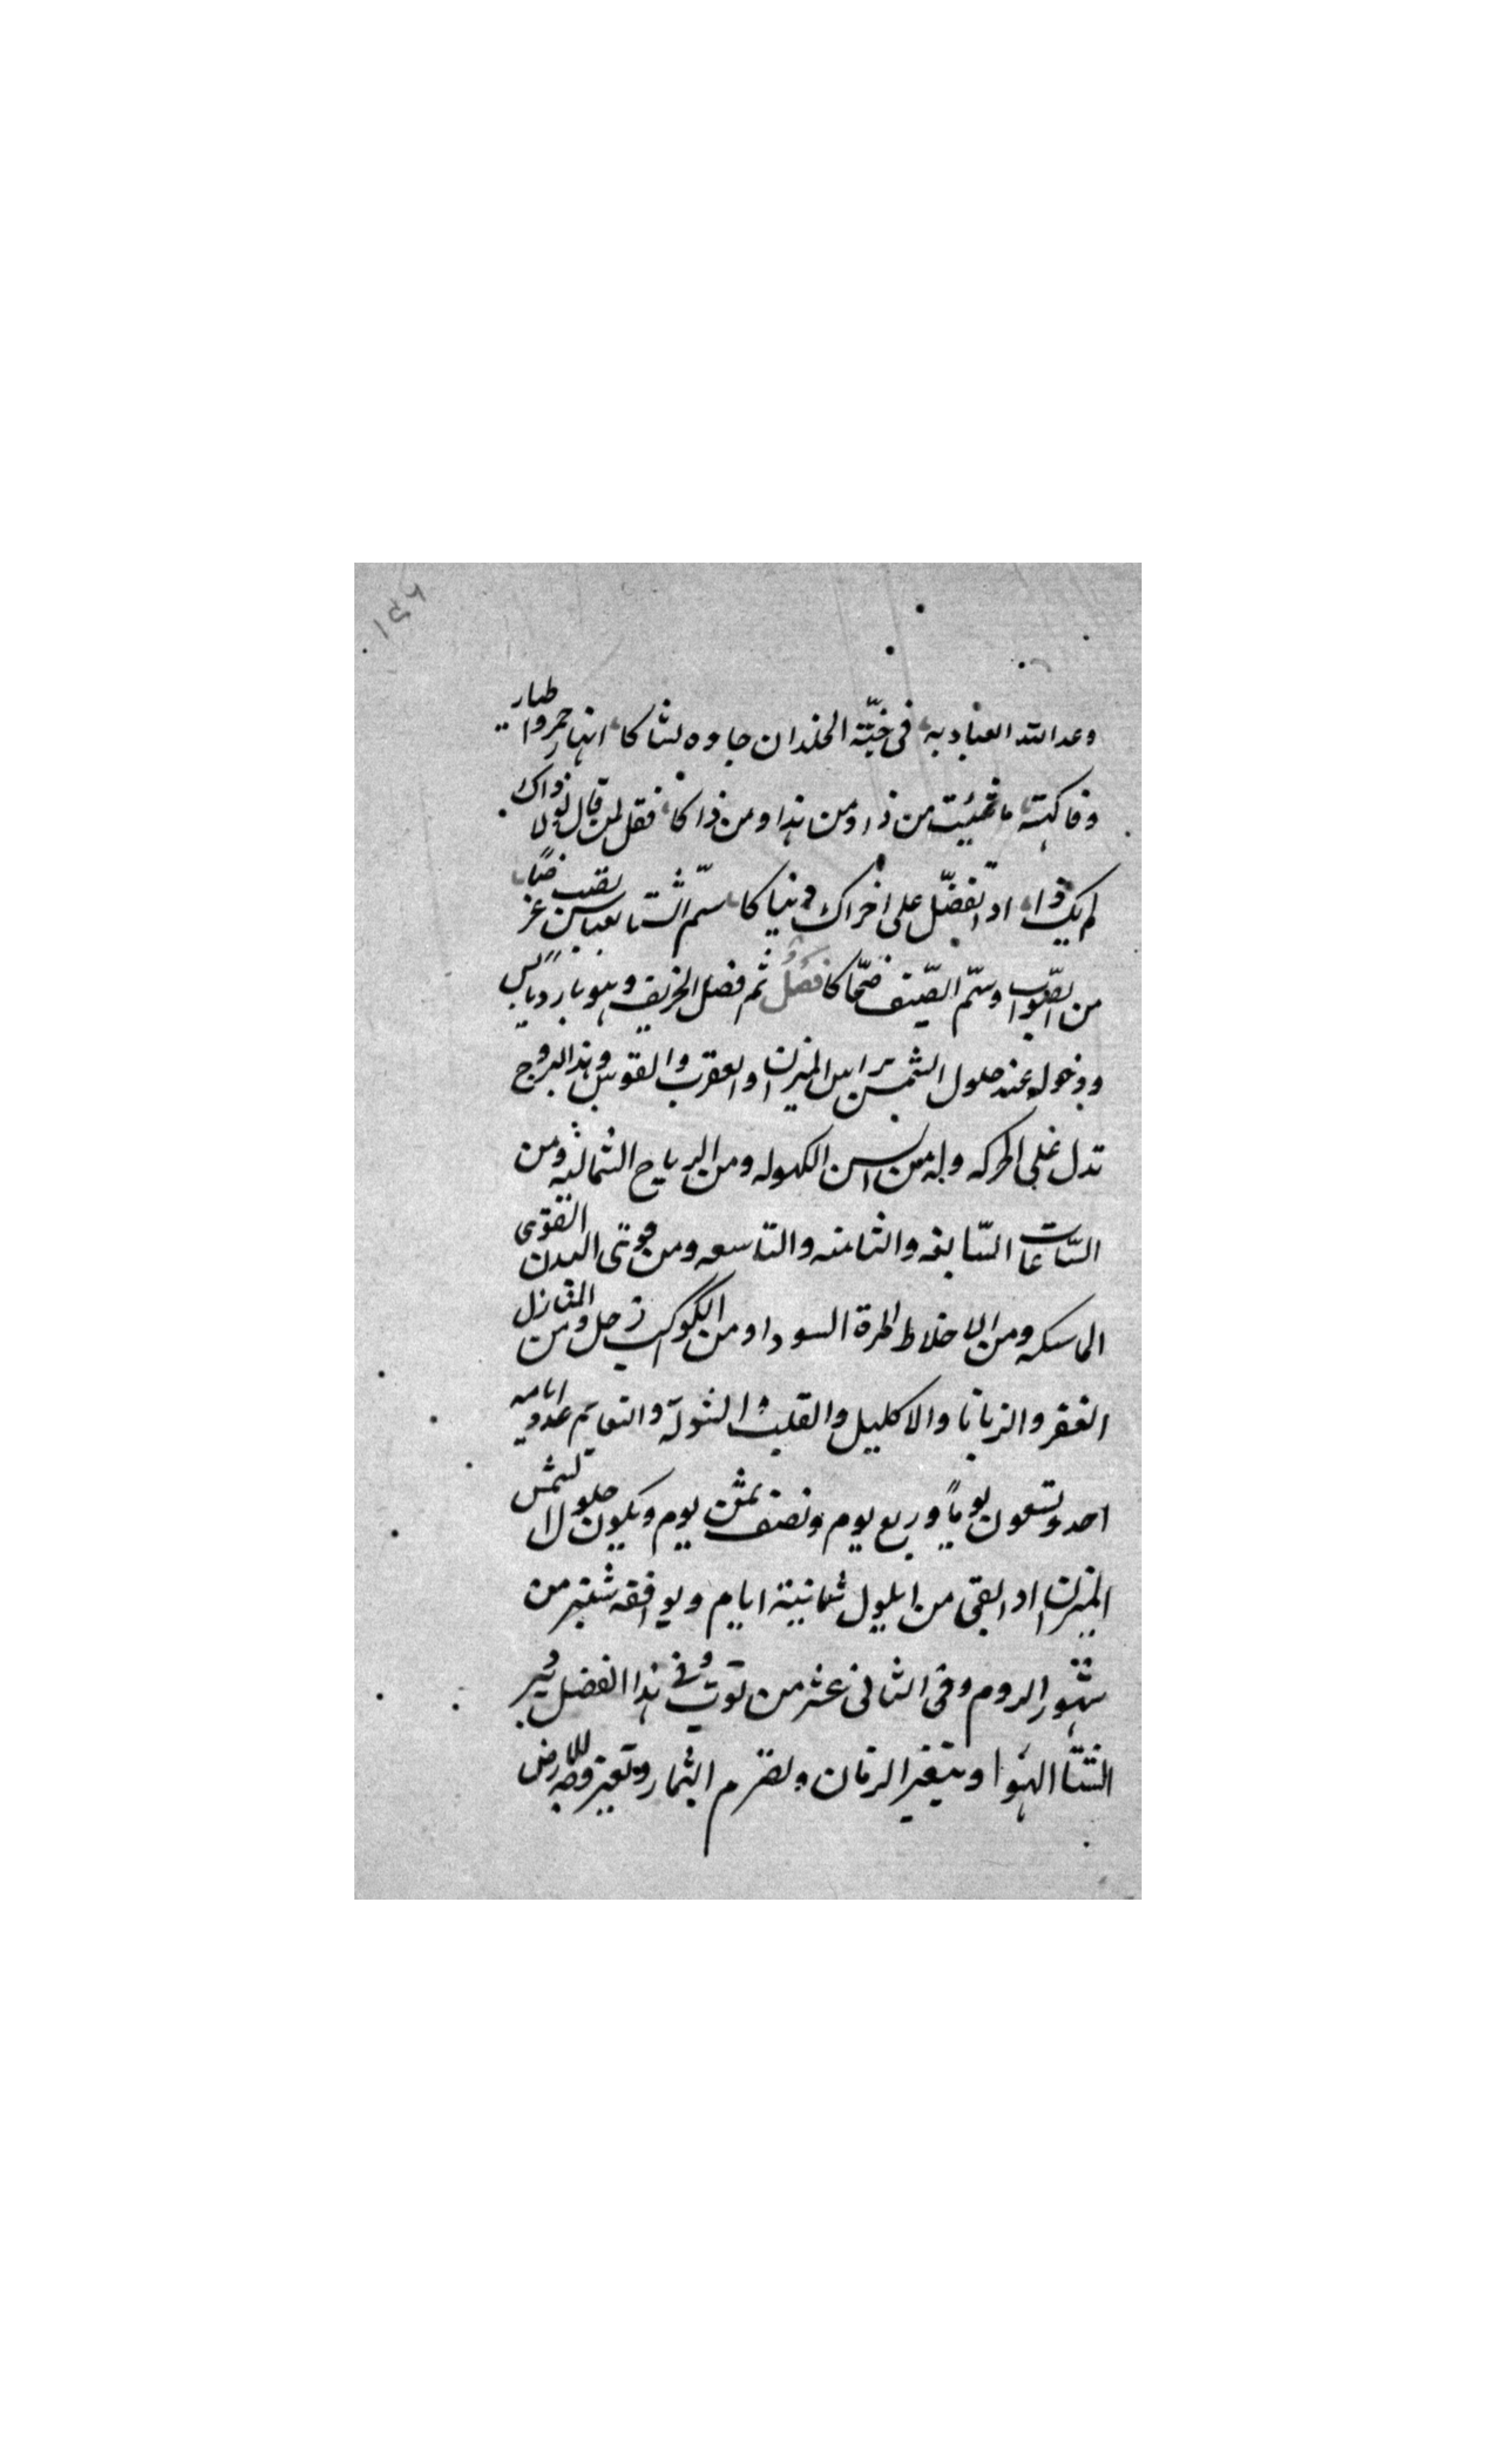 ١٥٦
وعد الله العباد به فى جنّة الخلدان جاوه لشا كا انهار خمر واطيار
وفاكهة ما شئت من ذا ومن هذا ومن ذاكا فقل لمن قال لولا ذواك
لم يك ذا اذ تفضّل على اخراك دنيا كا سمّ الشتا بعباس تصب غرضا
من الصّواب وسمّ الصّيف ضحّاكا فصل ثم فصل الخريف وهو بارد يابس
ودخوله عند حلول الشمس براس الميزان والعقرب والقوس وهذه البروج
تدل على الحركه وله من السن الكهوله ومن الرياح الشماليه ومن
السّاعات السّابعه والثامنه والتاسعه ومن قوى البدن القوى
الماسكه ومن الاخلاط المرة السودا ومن الكوكب زحل ومن المنازل
الغفر والزبانا والاكليل والقلب والشولة والنعايم عدد ايامه
احد وتسعون يوماً وربع يوم ونصف ثمن يوم ويكون حلول الشمس
الميزان اذا بقى من ايلول ثمانية ايام ويوافقه شتنبر من
شهور الروم وفى الثانى عشر من توت وفى هذا الفصل يبرد
الهوا ويتغير الزمان وتصرم الثمار ويتغير وجه الارض